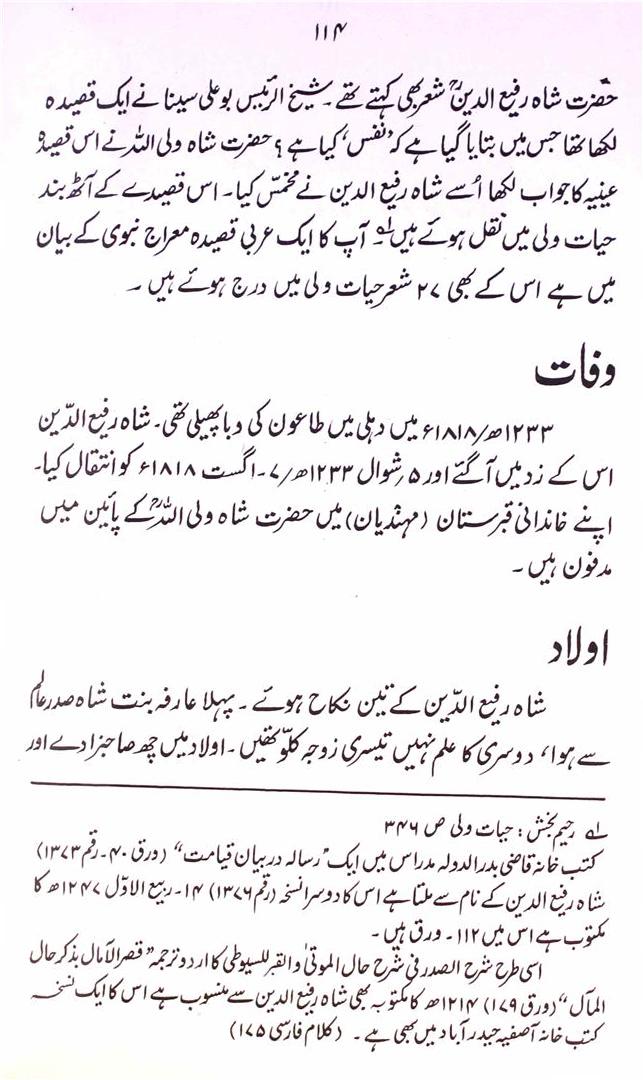 ۱۱۴
حضرت شاہ رفیع الدینؒ شعر بھی کہتے تھے۔ شیخ الرئیس بوعلی سینا نے ایک قصیدہ
لکھا تھا جس میں بتایا گیا ہے کہ ’نفس‘ کیا ہے؟ حضرت شاہ ولی اللہ نے اس قصیدہ
عینیہ کا جواب لکھا اُسے شاہ رفیع الدین نے مخمّس کیا۔ اس قصیدے کے آٹھ بند
حیات ولی میں نقل ہوئے ہیں لہ آپ کا ایک عربی قصیدہ معراج نبوی کے بیان
میں ہے اس کے بھی ۲۷ شعر حیات ولی میں درج ہوئے ہیں ۔
وفات
۱۲۳۳ھ/۱۸۱۸ء میں دہلی میں طاعون کی وبا پھیلی تھی۔ شاہ رفیع الدّین
اس کے زد میں آ گئے اور ۵؍شوال ۱۲۳۳ھ/۷۔اگست ۱۸۱۸ء کو انتقال کیا۔
اپنے خاندانی قبرستان (مہندیان) میں حضرت شاہ ولی اللہؒ کے پائین میں
مدفون ہیں ۔
اولاد
شاہ رفیع الدّین کے تین نکاح ہوئے ۔ پہلا عارفہ بنت شاہ صدر عالم
سے ہوا، دوسری کا علم نہیں تیسری زوجہ کلّو تھیں۔ اولاد میں چھ صاحبزادے اور
لہ رحیم بخش : حیات ولی ص ۳۴۶
کتب خانہ قاضی بدر الدولہ مدراس میں ایک ”رسالہ در بیان قیامت“ (ورق ۴۰۔رقم ۱۳۷۳)
شاہ رفیع الدین کے نام سے ملتا ہے اس کا دوسرا نسخہ (رقم ۱۳۷۶) ۱۴۔ربیع الاوّل ۱۲۴۷ھ کا
مکتوب ہے اس میں ۱۱۲۔ ورق ہیں ۔
اسی طرح شرح الصدر فی شرح حال الموتیٰ والقبر للسیوطی کا اردو ترجمہ ”قصر الآمال بذکر حال
المآل“ (ورق ۱۷۹) ۱۲۱۴ھ کا مکتوبہ بھی شاہ رفیع الدین سے منسوب ہے اس کا ایک نسخہ
کتب خانہ آصفیہ حیدرآباد میں بھی ہے ۔ (کلام فارسی ۱۷۵)